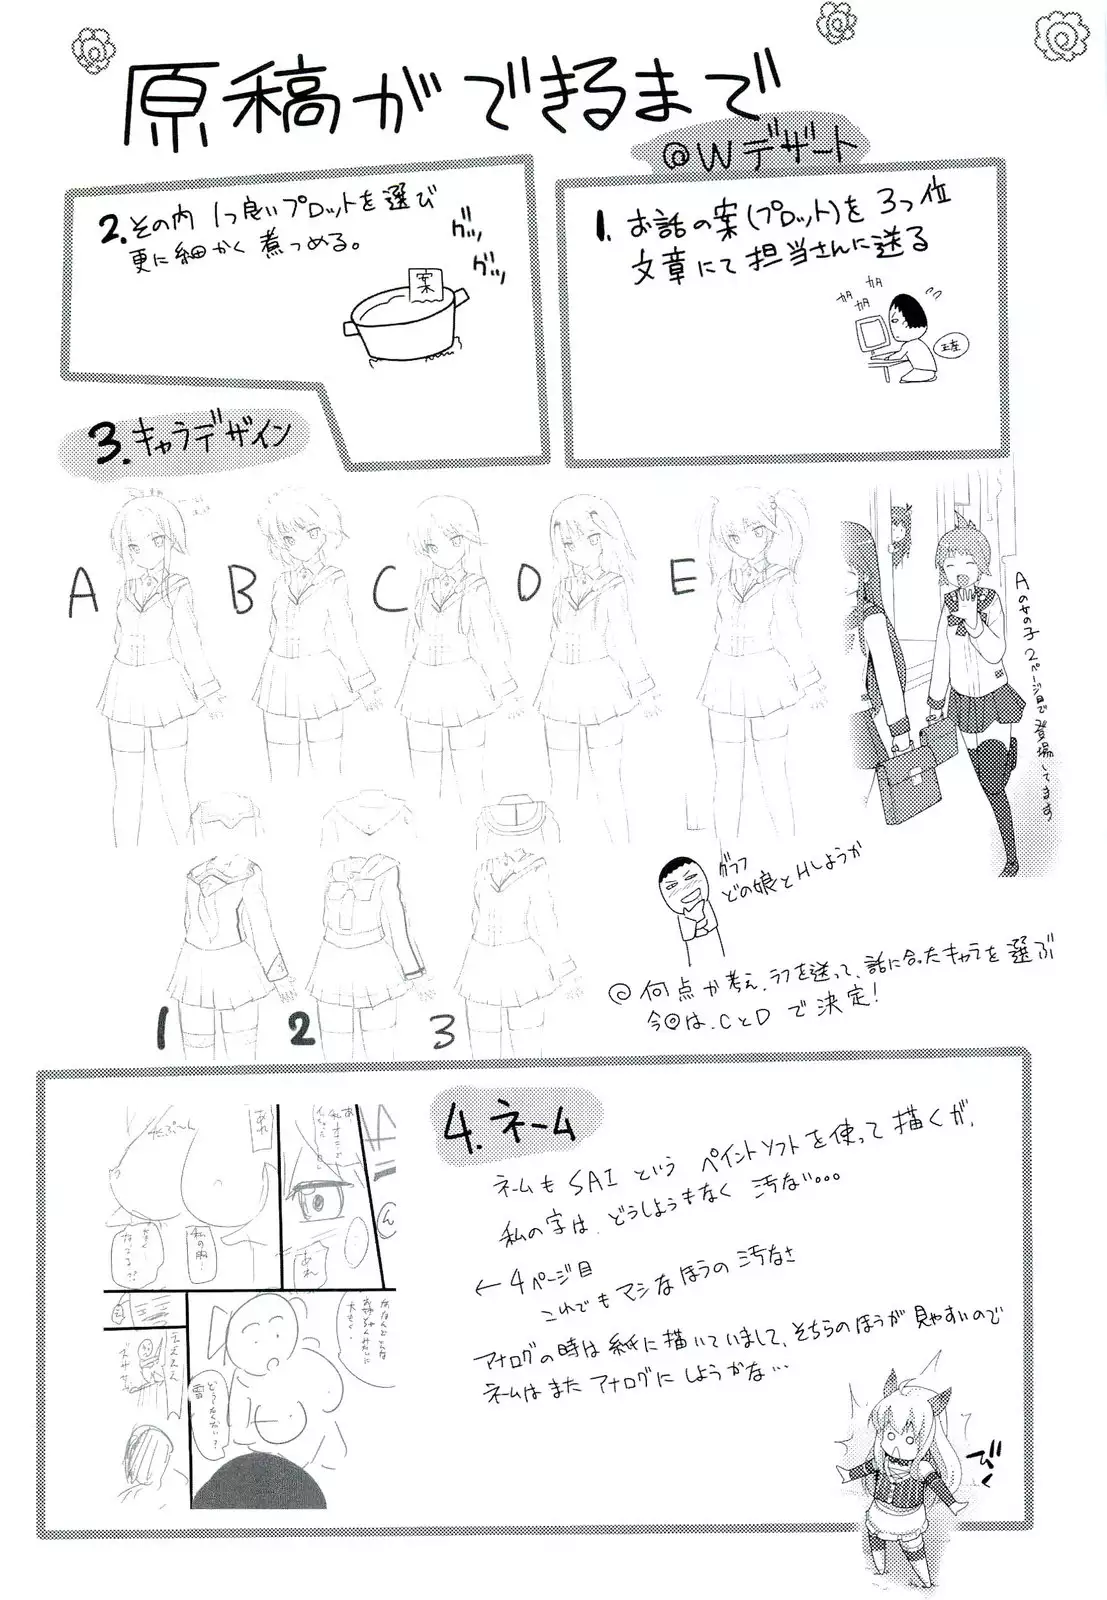 原稿ができるまで
@Wデザート
1. お話の案(プロット)を3つ位
文章にて担当さんに送る
カタ
カタ
2. その内 1つ良いプロットを選び
更に細かく煮つめる。
グツ
グツ
案
3. キャラデザイン
A
B
C
D
E
Aの女の子 2ページ目で登場してます
1
2
3
グフフ
どの娘とHしようか
◎何点か考え、ラフを送って、話に合ったキャラを選ぶ
今回は、CとDで決定!
4. ネーム
ネームもSAIというペイントソフトを使って描くが、
私の字は、どうしようもなく汚ない...
←4ページ目
これでもマシなほうの汚なさ
アナログの時は紙に描いていまして、そちらのほうが見やすいので
ネームはまたアナログにしようかな...
びく
あれ